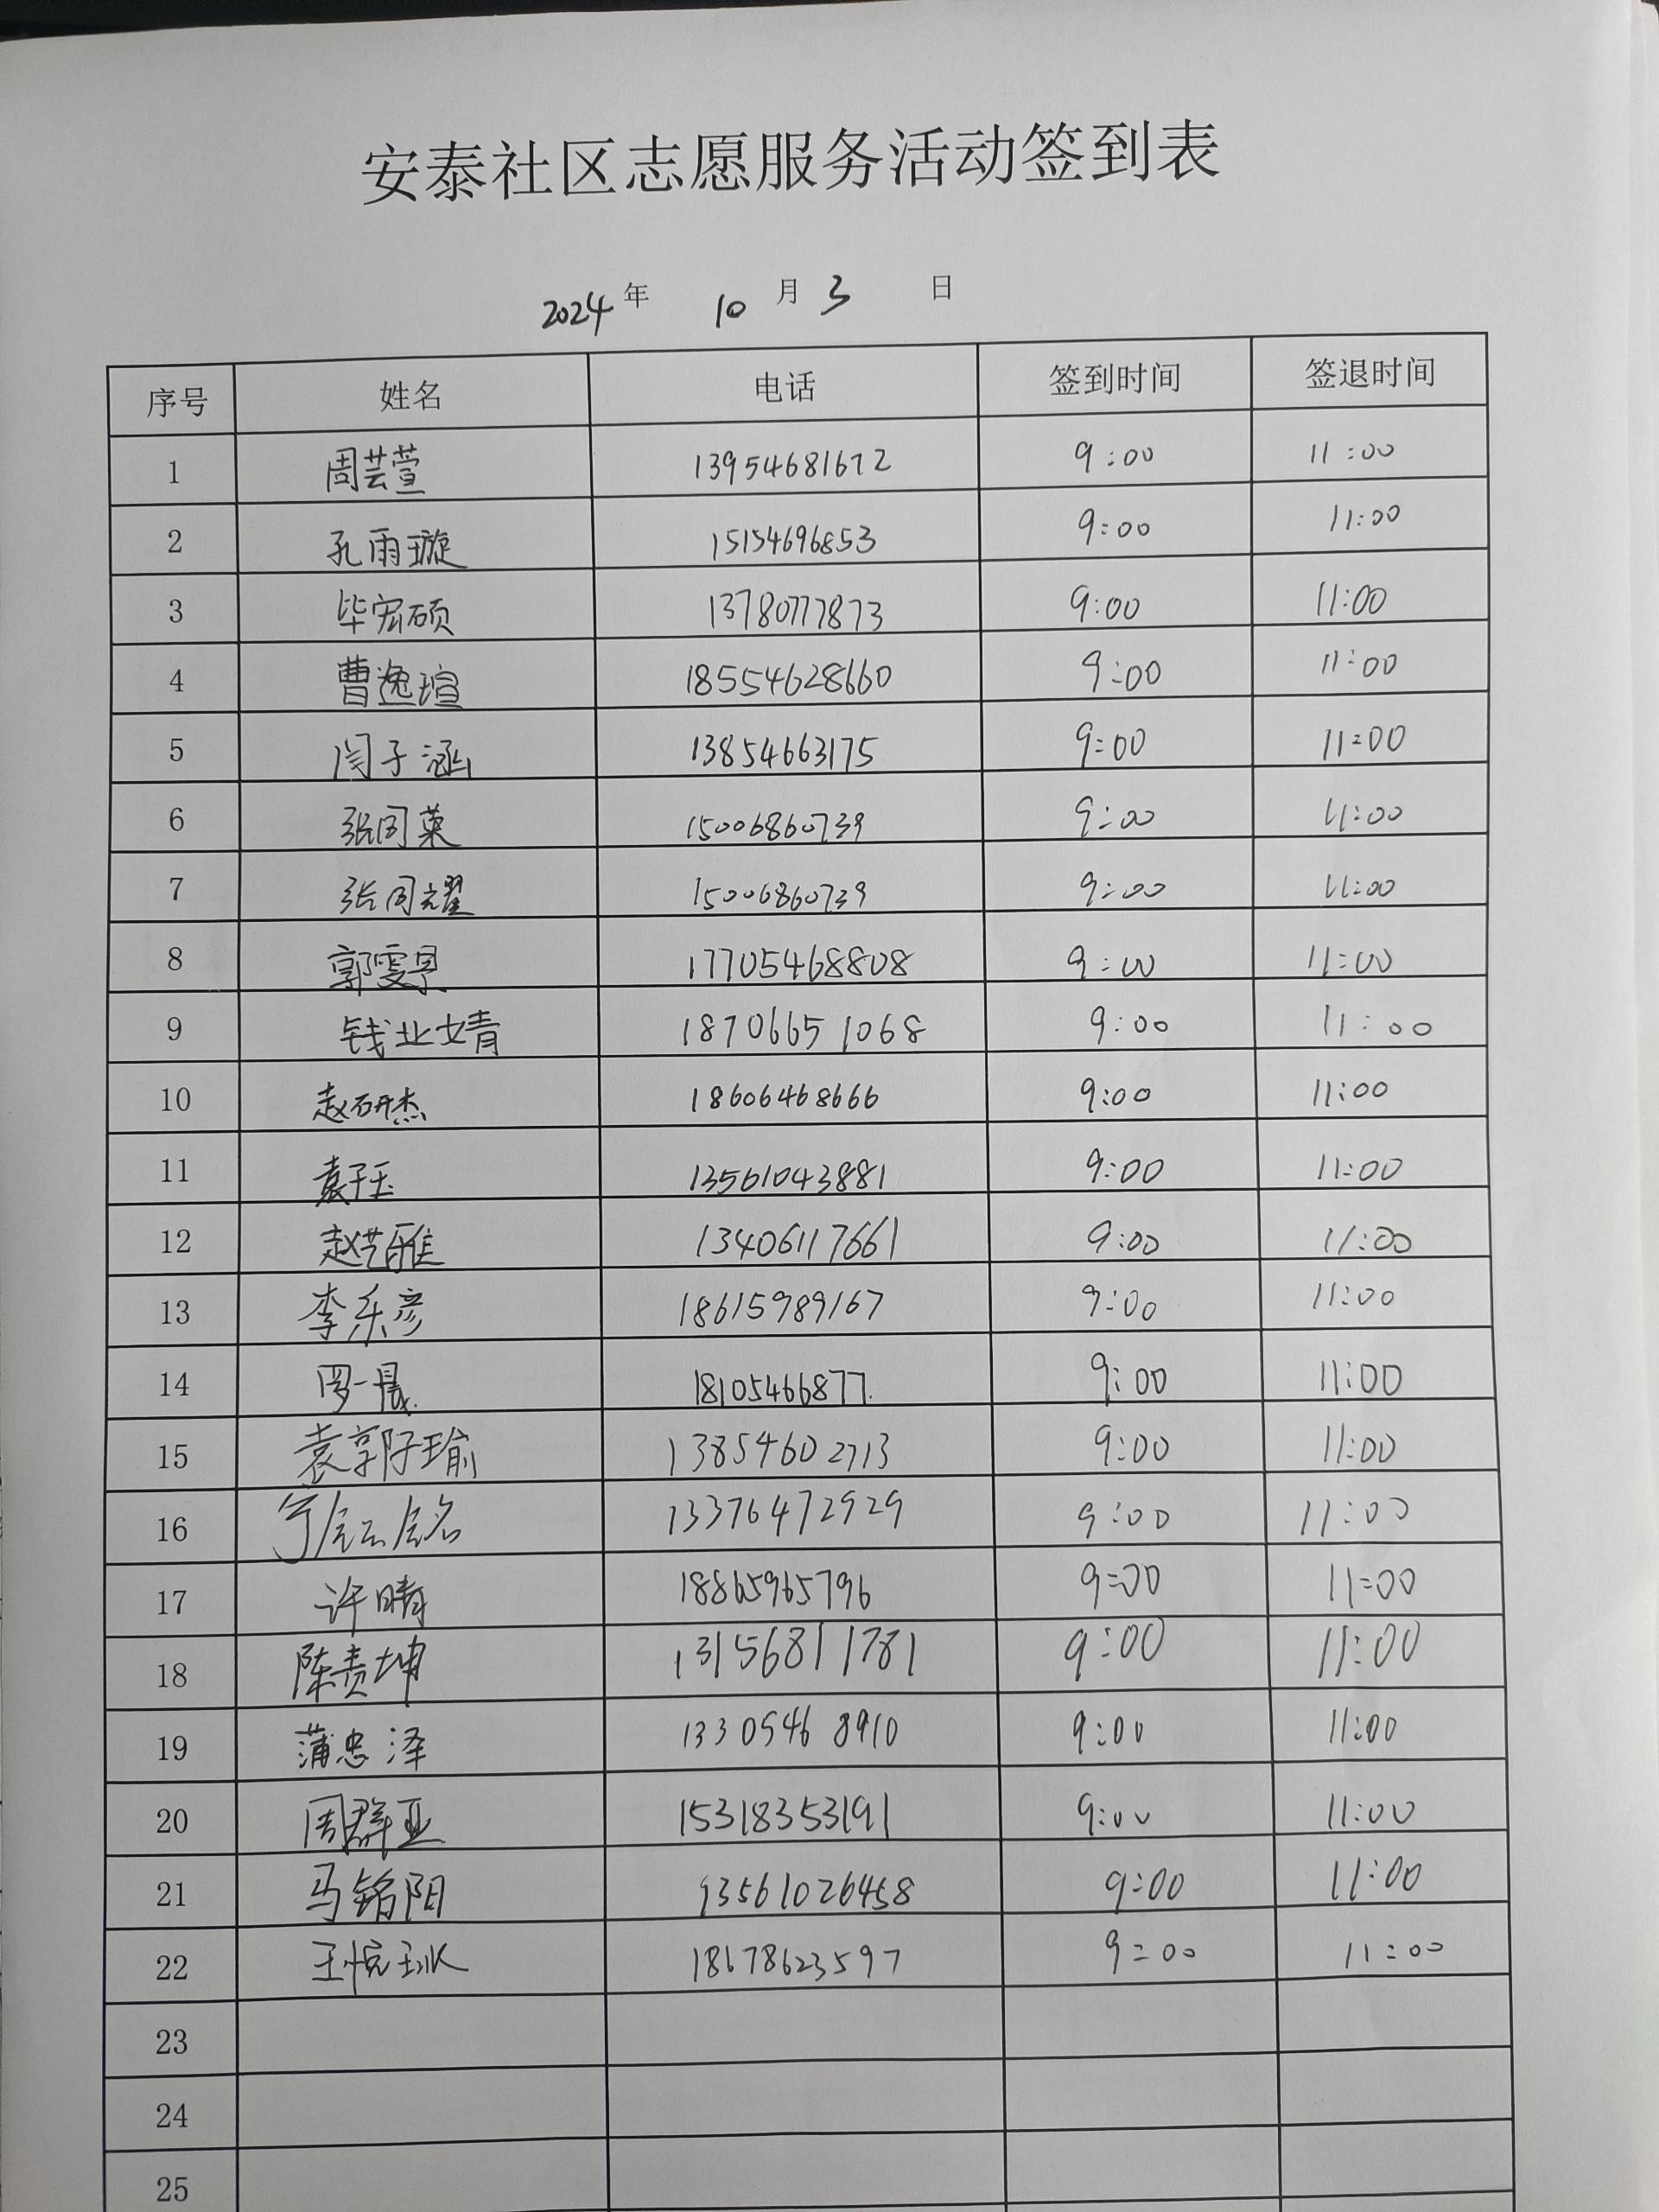 安泰社区志愿服务活动签到表
2024 年 10 月 3 日
序号 姓名 电话 签到时间 签退时间
1 周芸萱 13954681672 9:00 11:00
2 孔雨璇 15154696853 9:00 11:00
3 毕宏硕 13780777873 9:00 11:00
4 曹逸瑄 18554628660 9:00 11:00
5 闫子涵 13854663175 9:00 11:00
6 张同荣 15006860739 9:00 11:00
7 张同耀 15006860739 9:00 11:00
8 郭雯景 17705468808 9:00 11:00
9 钱业婧 18706651068 9:00 11:00
10 赵研杰 18606468666 9:00 11:00
11 袁子玉 13561043881 9:00 11:00
12 赵艺雅 13406117661 9:00 11:00
13 李乐彦 18615989167 9:00 11:00
14 罗一晟 18105466877 9:00 11:00
15 袁郭子瑜 13854602713 9:00 11:00
16 13376472929 9:00 11:00
17 许晴 18865965796 9:00 11:00
18 陈责坤 13156811781 9:00 11:00
19 蒲忠泽 13305468910 9:00 11:00
20 周群亚 15318353191 9:00 11:00
21 马铭阳 13561026458 9:00 11:00
22 王悦 18678623597 9:00 11:00
23
24
25